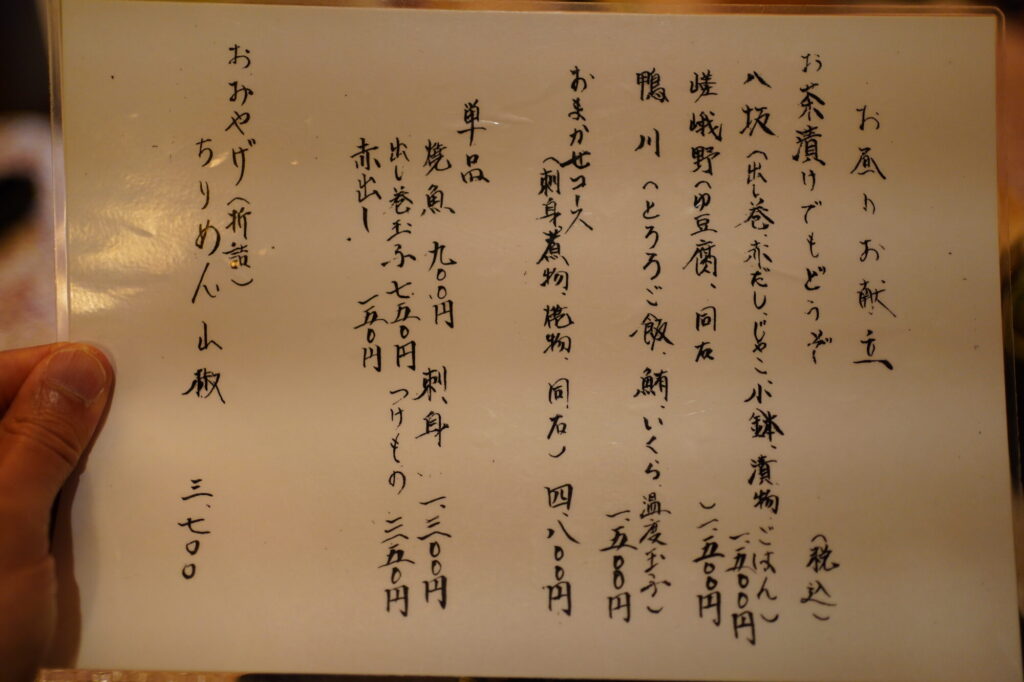 お昼のお献立
お茶漬けでもどうぞ (税込)
八坂(出し巻、赤だし、じゃこ、小鉢、漬物、ごはん) 一、五〇〇円
嵯峨野(ゆ豆腐、同右) 一、五〇〇円
鴨川(とろろご飯、鮪、いくら、温度玉子) 一、五〇〇円
おまかせコース
(刺身、煮物、焼物、同右) 四、八〇〇円
単品
焼魚 九〇〇円 刺身 一、三〇〇円
出し巻玉子 七五〇円 つけもの 二五〇円
赤出し 一五〇円
おみやげ(折詰)
ちりめん山椒 三、七〇〇